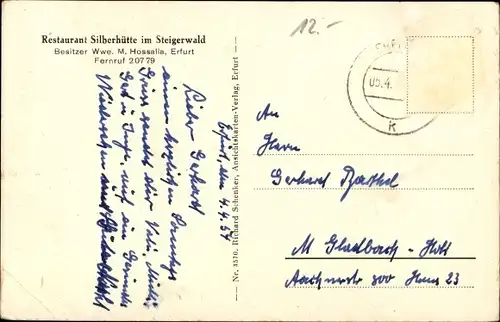 Restaurant Silberhütte im Steigerwald
Besitzer Wwe. M. Hossalla, Erfurt
Fernruf 20779
12.-
Erfurt, den 4.4.57
Lieber Gerhard
einen herzlichen Sonntags
Gruss sendet dir
Wiedersehen
Nr. 3510. Richard Schenker, Ansichtskarten-Verlag, Erfurt
05.4.
K
An
Herrn
Gerhard Barthel
M Gladbach - Holt
Aachnerstr 300 Haus 23